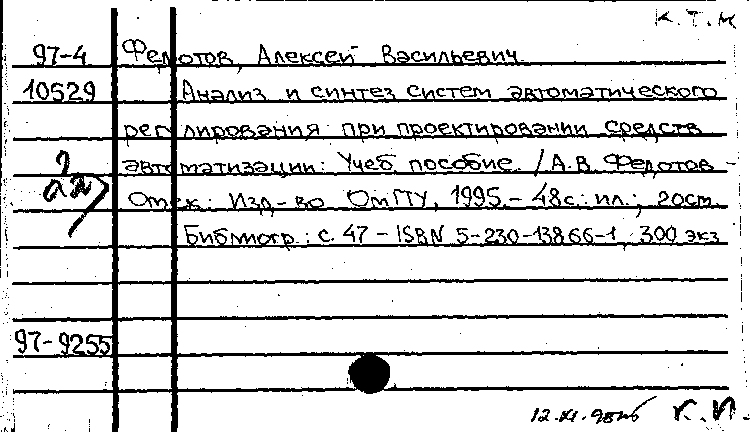 К.Т.Н
97-4 Федотов, Алексей Васильевич
10529 Анализ и синтез систем автоматического
регулирования при проектировании средств
автоматизации: Учеб. пособие. / А.В. Федотов -
Омск: Изд-во ОмГТУ, 1995. - 48с.: ил.; 20см
Библиогр.: с. 47 - ISBN 5-230-13866-1, 300 экз
97-9255
12.XI.98 К.И.